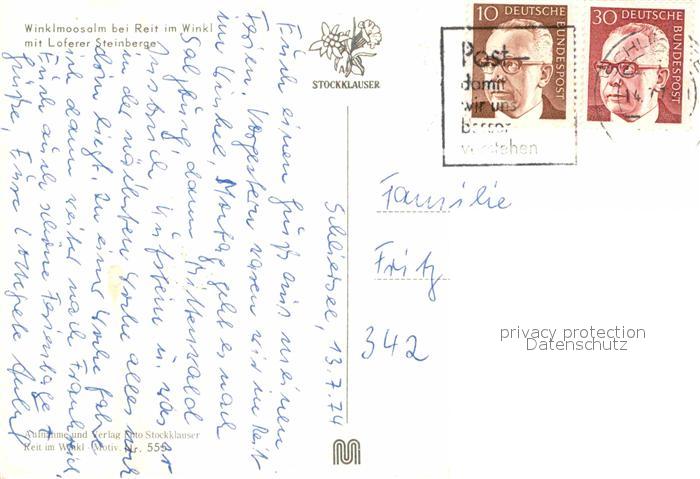 Winklmoosalm bei Reit im Winkl
mit Loferer Steinberge
STOCKKLAUSER
10 DEUTSCHE BUNDESPOST
30 DEUTSCHE BUNDESPOST
Post-
damit
wir uns
besser
verstehen
Schliersee, 13.7.74
Euch einen Gruß aus meinen
Ferien. Vorgestern waren wir in Reit
im Winkel, Montag geht es nach
Salzburg, dann Mittenwald
Kufstein u. was
in der nächsten Woche alles noch
drin liegt. Eine Woche fahr
ich dann weiter nach Frankreich,
Euch auch schöne Ferientage u.
Grüße, Eure
Familie
Fritz
342
privacy protection
Datenschutz
Aufnahme und Verlag Foto Stockklauser
Reit im Winkl - Motiv. Nr. 555